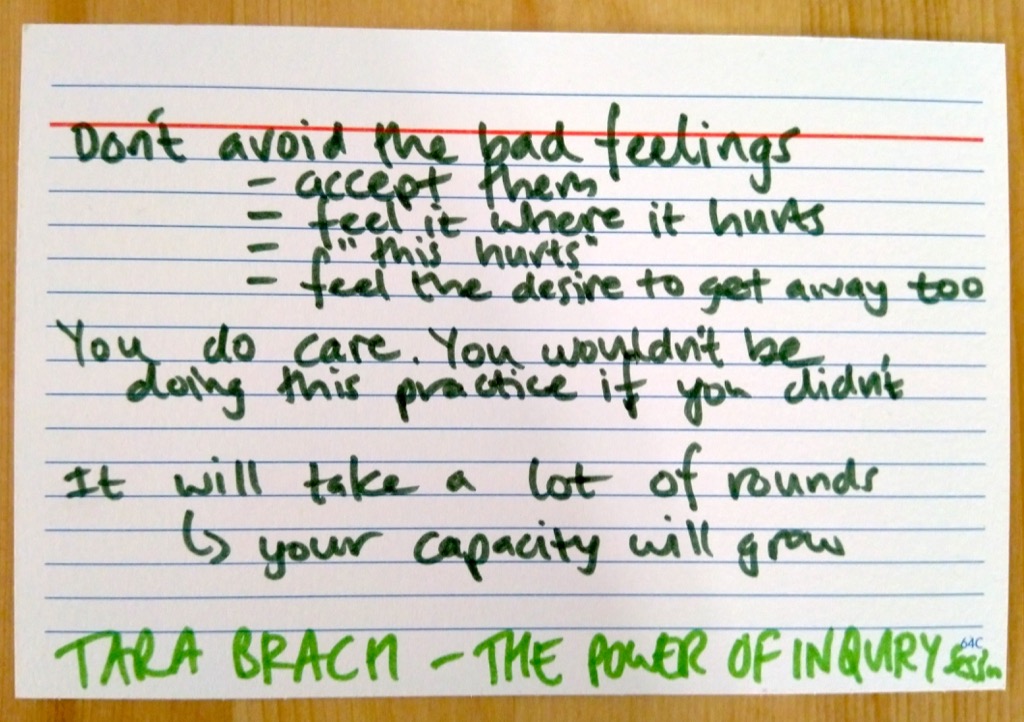 Don't avoid the bad feelings
- accept them
- feel it where it hurts
- "this hurts"
- feel the desire to get away too
You do care. You wouldn't be
doing this practice if you didn't
It will take a lot of rounds
↳ your capacity will grow
64C
TARA BRACH - THE POWER OF INQUIRY